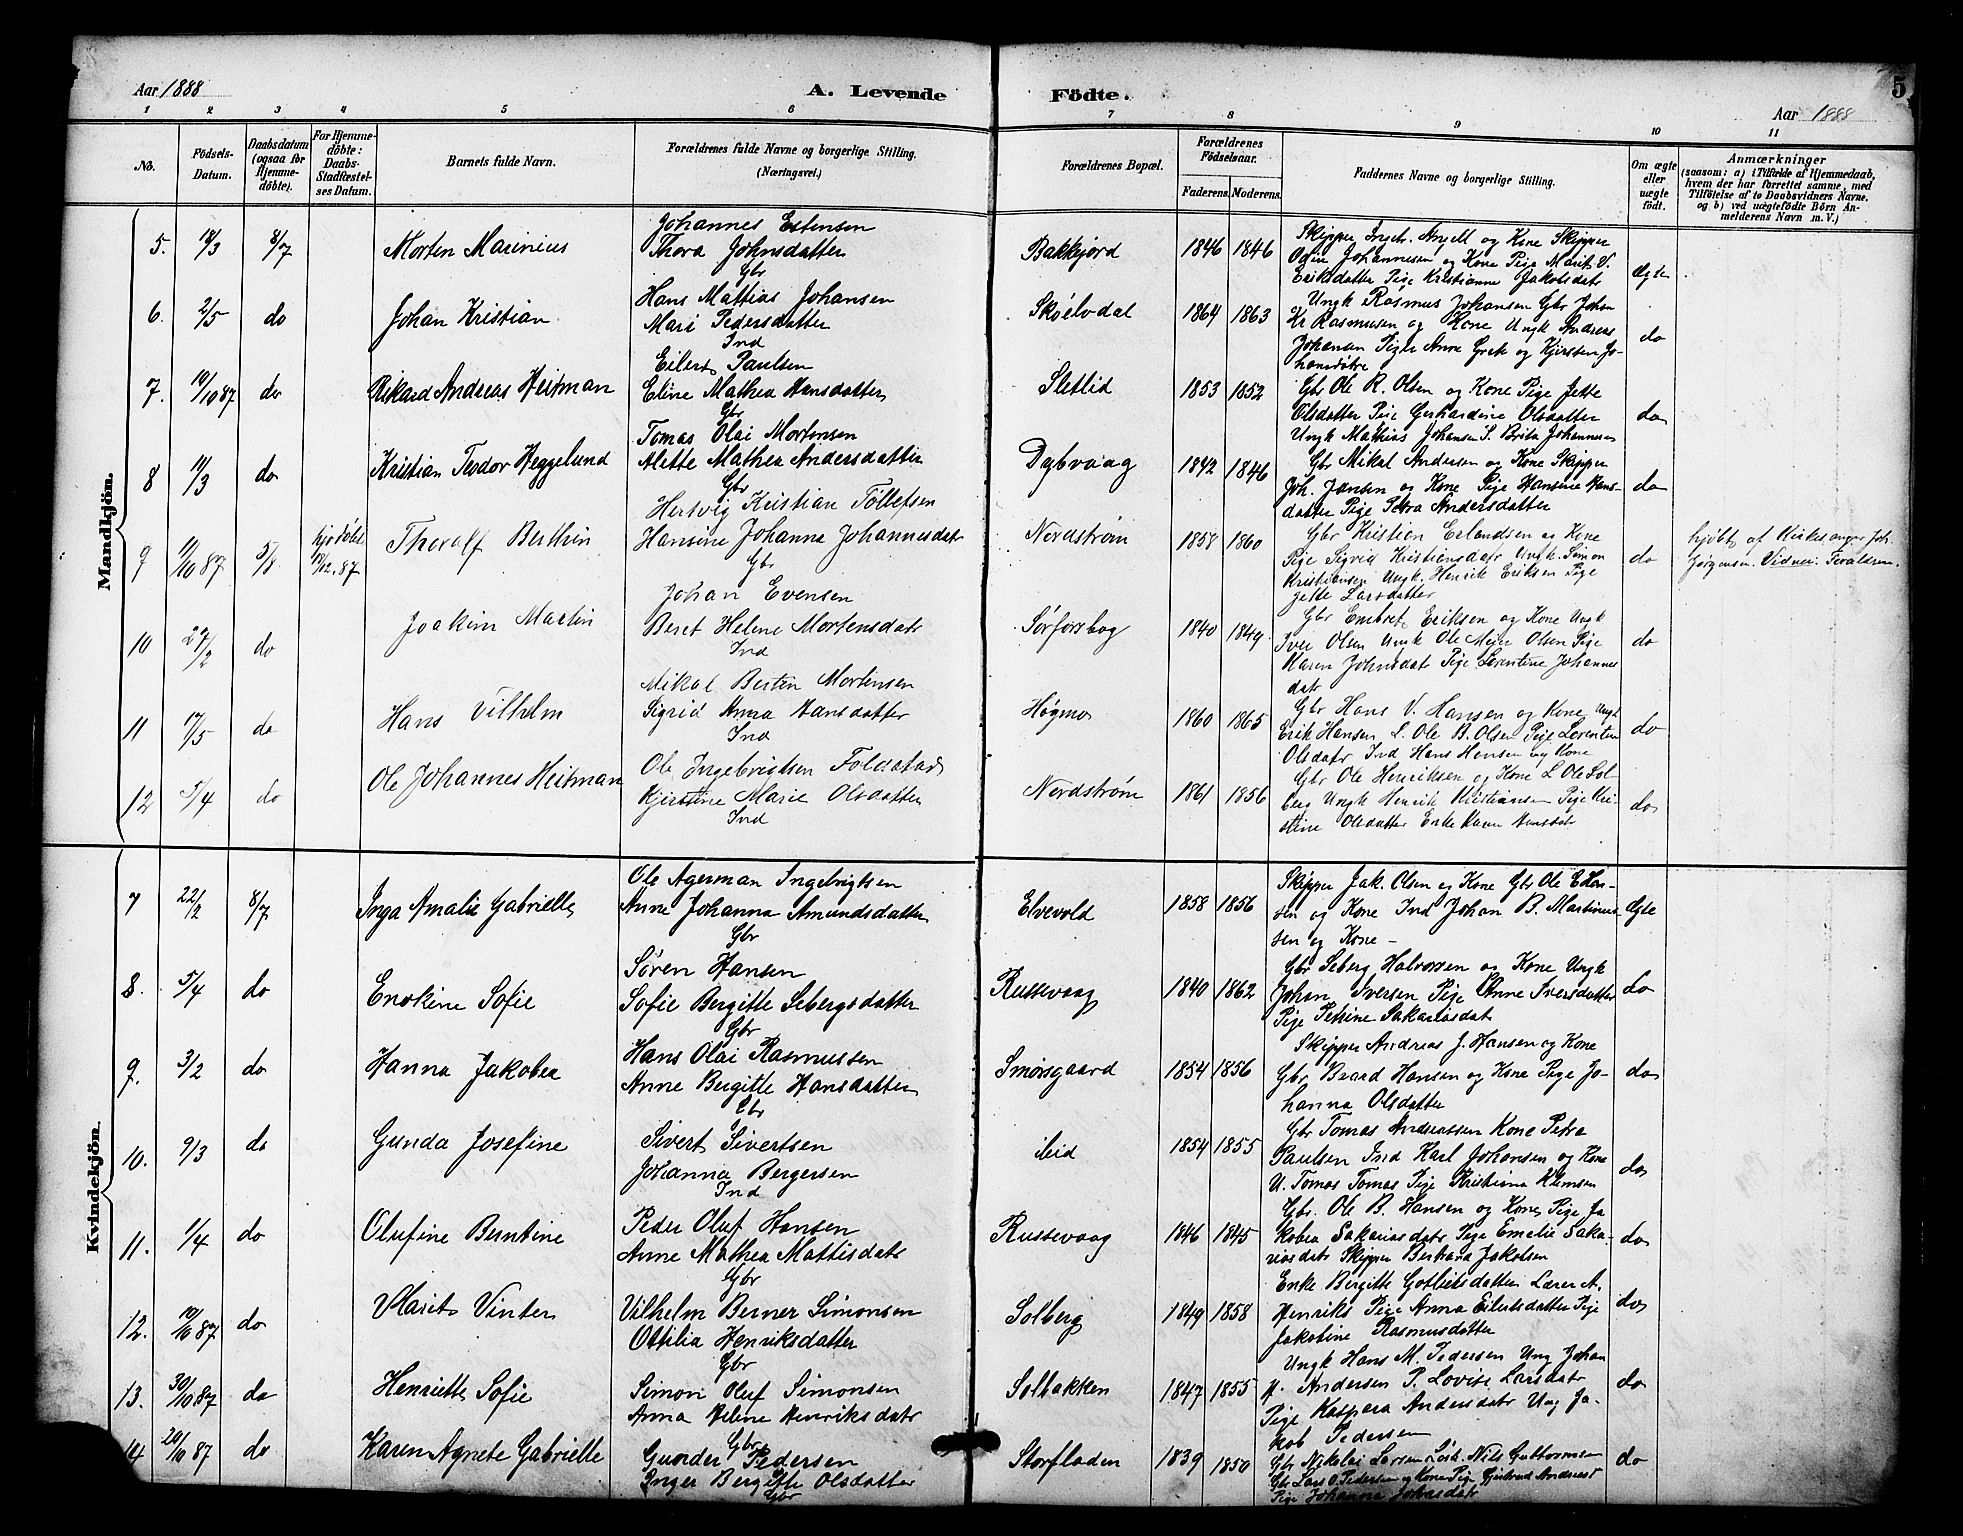 Aar 1888
A. Levende
Födte.
Aar 1888
5
1 2 3 4 5 6 7 8 9 10 11
No.
Födsels-Datum.
Daabsdatum (ogsaa for Hjemme-döbte).
For Hjemme-döbte: Daabs-Stadfæstelses Datum.
Barnets fulde Navn.
Forældrenes fulde Navne og borgerlige Stilling.
(Næringsvei.)
Forældrenes Bopæl.
Forældrenes Födselsaar.
Faderens. Moderens.
Faddernes Navne og borgerlige Stilling.
Om ægte eller uægte födt.
Anmærkninger
(saasom: a) i Tilfælde af Hjemmedaab,
hvem der har forrettet samme, med
Tilföielse af to Daabsvidners Navne,
og b) ved uægtefödte Börn An-
melderens Navn m. V.)
Mandkjön.
5. 18/3 8/7 Morten Marinius
Johannes Estensen
Thora Johnsdatter
Gbr
Bakkejord 1846 1846
Skipper Ingebr. Angell og Kone Skipper
Odin Johannesen og Kone Pige Marit V.
Eriksdatter Pige Kristianne Jakobsdatr
Ægte
6. 2/5 do Johan Kristian
Hans Mattias Johansen
Mari Pedersdatter
Ind
Skøelvdal 1864 1863
Ungk Rasmus Johansen Gbr Johan
Kr Rasmusen og Kone Ungk Andreas
Johansen Piger Anne Grete og Kjersten Jo-
hansdøtre
do
7. 19/10 87 do Rikard Andreas Heitman
Eilert Paulsen
Eline Mathea Hansdatter
Gbr
Sletlid 1853 1852
Gbr Ole R. Olsen og Kone Pige Jette
Olsdatter Pige Gerhardine Olsdatter
Ungk Mathias Johansen S. Brita Johannesen
do
8 11/3 do Kristian Teodor Heggelund
Tomas Olai Mortensen
Alette Mathea Andersdatter
Gbr
Dybvaag 1842 1846
Gbr Mikal Andersen og Kone Skipper
Joh. Jansen og Kone Pige Hansine Hans-
datter Pige Petra Andersdatter
do
9 11/10 87 5/8 hjdøbt 18/12.87 Thoralf Berthin
Hertvig Kristian Tollefsen
Hansine Johanna Johannesdatr
Gbr
Nordstrøm 1858 1860
Gbr Kristian Erlandsen og Kone
Pige Sigrid Kristiansdatr Ungk. Simon
Kristiansen Ungk. Henrik Eriksen Pige
Jette Larsdatter
do
hjdøbt af Kirkesanger Joh.
Jørgensen. Vidner: Forældrene.
10 27/2 do Joakim Martin
Johan Evensen
Beret Helene Mortensdatr
Ind
Sørforsbog 1840 1849
Gbr Embret Eriksen og Kone Ungk
Iver Olsen Ungk Ole Meyer Olsen Pige
Karen Johnsdatr Pige Lorentine Johannes
datr
do
11 17/5 do Hans Vilhelm
Mikal Berten Mortensen
Sigrid Anna Hansdatter
Ind
Høgmo 1860 1865
Gbr Hans V. Hansen og Kone Ungk
Erik Hansen L. Ole B. Olsen Pige Lorentine
Olsdatr Ind Hans Hansen og Kone
do
12 5/4 do Ole Johannes Heitman
Ole Ingebrigtsen Foldstad
Kjerstine Marie Olsdatter
Ind
Nordstrøm 1861 1856
Gbr Ole Henriksen og Kone L Ole Sol-
berg Ungk Henrik Kristiansen Pige Kri-
stine Olsdatter Enke Karen Hansdatr
do
Kvindekjön.
7 22/2 8/7 Inga Amalie Gabrielle
Ole Agerman Ingebrigtsen
Anne Johanna Amundsdatter
Gbr
Elvevold 1858 1856
Skipper Jak. Olsen og Kone Gbr Ole E Han-
sen og Kone Ind Johan B. Martinus-
sen og Kone –
Ægte
8. 5/4 do Enokine Sofie
Søren Hansen
Sofie Bergitte Sebergsdatter
Gbr
Russevaag 1840 1862
Gbr Seberg Halvorsen og Kone Ungk
Johan Iversen Pige Anne Iversdatter
Pige Petrine Sakariasdat
do
9. 3/2 do Hanna Jakobea
Hans Olai Rasmussen
Anne Bergitte Hansdatter
Gbr
Smørsgaard 1854 1856
Skipper Andreas J. Hansen og Kone
Gbr Baard Hansen og Kone Pige Jo-
hanna Olsdatter
do
10. 9/3 do Gunda Josefine
Sivert Sivertsen
Johanna Bergersen
Ind
Eid 1854 1855
Gbr Tomas Andreassen Kone Petra
Paulsen Ind Karl Johansen og Kone
U. Tomas Tomas Pige Kristiana Klemsen
do
11. 1/4 do Olufine Berntine
Peder Oluf Hansen
Anne Mathea Mattisdatr
Gbr
Russevaag 1846 1845
Gbr. Ole B. Hansen og Kone Pige Ja
kobea Sakariasdatr Pige Emelie Saka-
riasdatr Skipper Bertheus Jakobsen
do
12. 19/10 87 do Marit Vinter
Vilhelm Berner Simonsen
Ottilia Henriksdatter
Gbr
Solberg 1849 1858
Enke Bergitte Gotliebsdatter Lærer A.
Henriks Pige Anna Eilertsdatter Pige
Jakobine Rasmusdatter
do
13. 30/10 87 do Henriette Sofie
Simon Oluf Simonsen
Anna Helene Henriksdatr
Gbr
Solbakken 1847 1855
Ungk Hans M. Pedersen Ung Johan
H. Andersen P. Lovise Larsdatr
Pige Kaspara Andersdatr Ung Ja-
kob Pedersen
do
14 20/10 87 do Karen Agnete Gabrielle
Gunder Pedersen
Inger Bergitte Olsdatter
Gbr
Storfladen 1839 1850
Gbr Nikolai Larsen Løsk. Nils Guttormsen
Gbr Lars O. Pedersen og Kone Pige Gjertrud Andreasd
Pige Johanna Johasdatr
do